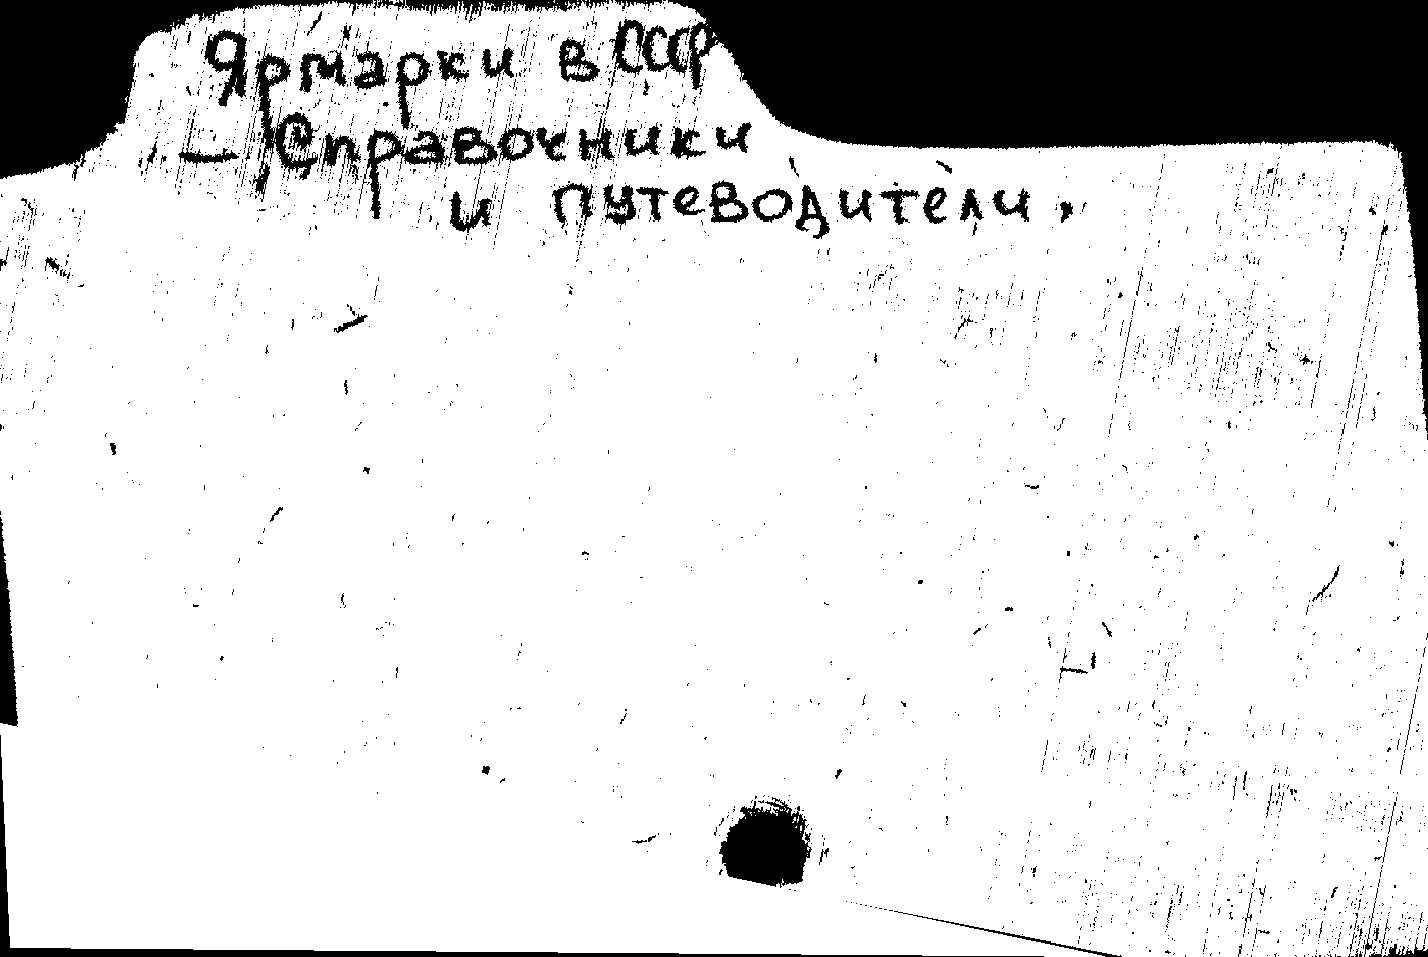 Ярмарки в СССР
— Справочники
и путеводители.